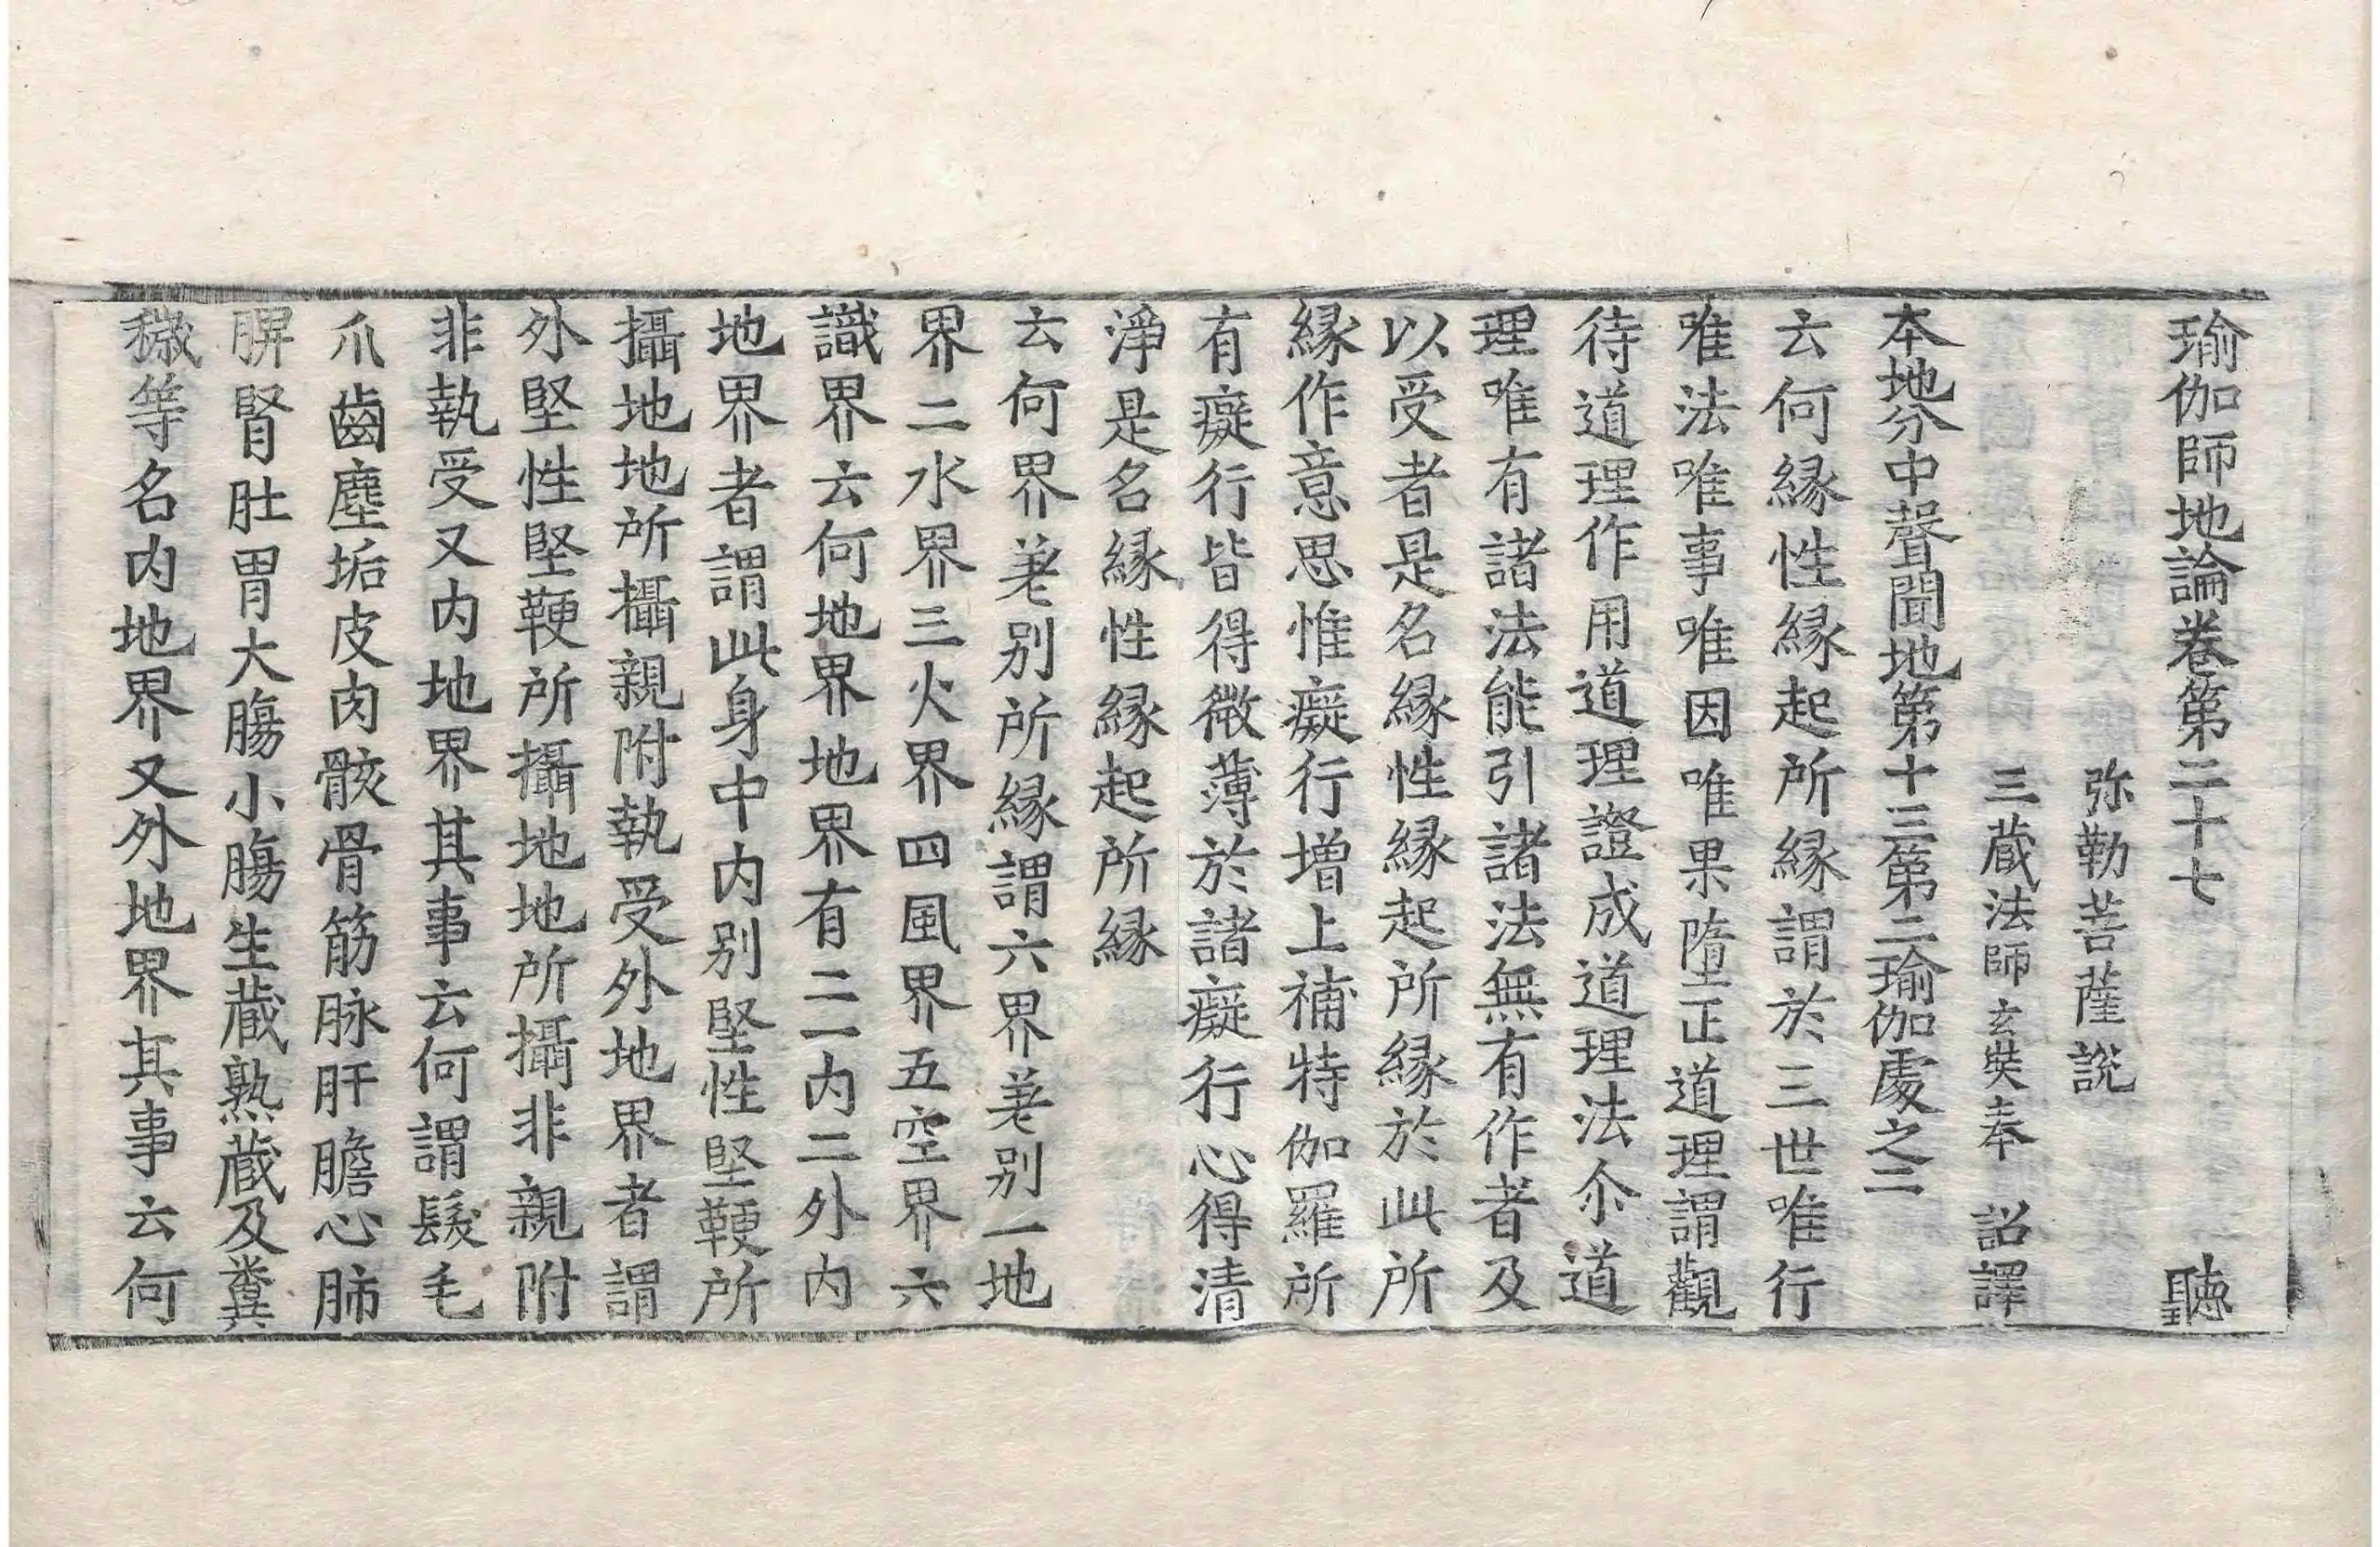 瑜伽師地論卷第二十七 聽
弥勒菩薩說
三藏法師玄奘奉 詔譯
本地分中聲聞地第十三第二瑜伽處之二
云何縁性縁起所縁謂於三世唯行
唯法唯事唯因唯果墮正道理謂觀
待道理作用道理證成道理法尒道
理唯有諸法能引諸法無有作者及
以受者是名縁性縁起所縁於此所
縁作意思惟癡行增上補特伽羅所
有癡行皆得微薄於諸癡行心得清
淨是名縁性縁起所縁
云何界差别所縁謂六界差别一地
界二水界三火界四風界五空界六
識界云何地界地界有二一内二外内
地界者謂此身中内别堅性堅鞕所
攝地地所攝親附執受外地界者謂
外堅性堅鞕所攝地地所攝非親附
非執受又内地界其事云何謂髮毛
爪齒塵垢皮肉骸骨筋脉肝膽心肺
脾腎肚胃大膓小膓生藏熟藏及糞
穢等名内地界又外地界其事云何